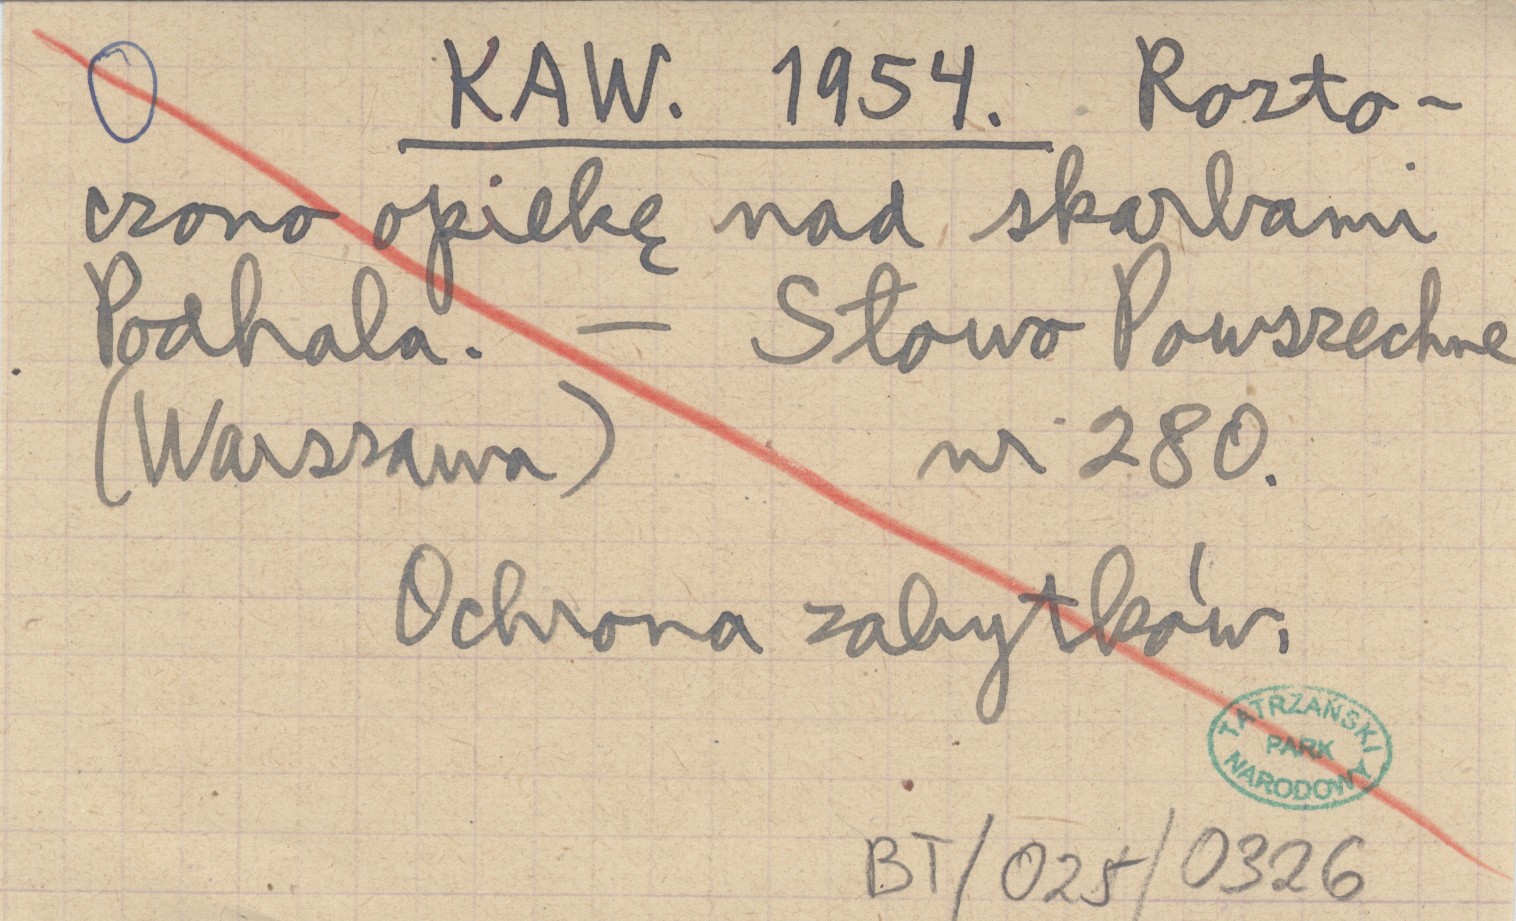 KAW. 1954. Rozto-
czono opiekę nad skarbami
Podhala. — Słowo Powszechne
(Warszawa) nr 280.
Ochrona zabytków.
TATRZAŃSKI
PARK
NARODOWY
BT/025/0326